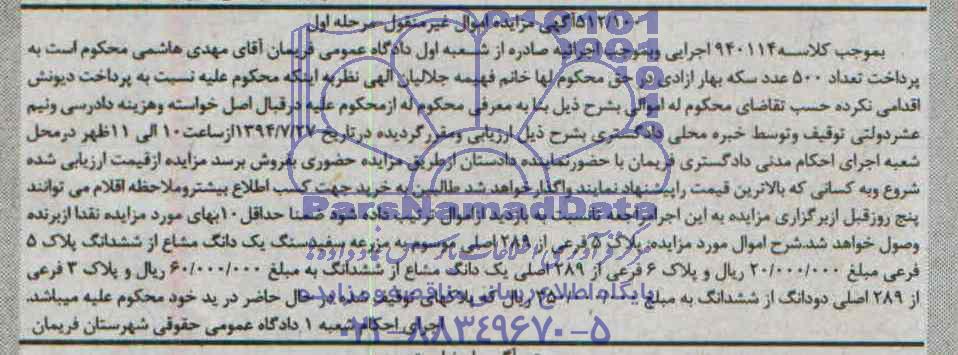 ۵۱۲/۱۰ آگهی مزایده اموال غیر منقول مرحله اول
بموجب کلاسه ۹۴۰۱۱۴ اجرایی وبموجب اجرائیه صادره از شعبه اول دادگاه عمومی فریمان آقای مهدی هاشمی محکوم است به
پرداخت تعداد ۵۰۰ عدد سکه بهار ازادی در حق محکوم لها خانم فهیمه جلالیان آلهی نظربه اینکه محکوم علیه نسبت به پرداخت دیونش
اقدامی نکرده حسب تقاضای محکوم له اموالی بشرح ذیل بنا به معرفی محکوم له ازمحکوم علیه درقبال اصل خواسته وهزینه دادرسی ونیم
عشردولتی توقیف وتوسط خبره محلی دادگستری بشرح ذیل ارزیابی ومقرر گردیده درتاریخ ۱۳۹۴/۷/۲۷ ازساعت ۱۰ الی ۱۱ ظهر درمحل
شعبه اجرای احکام مدنی دادگستری فریمان با حضورنماینده دادستان ازطریق مزایده حضوری بفروش برسد مزایده ازقیمت ارزیابی شده
شروع وبه کسانی که بالاترین قیمت راپیشنهاد نمایند واگذارخواهد شد طالبین به خرید جهت کسب اطلاع بیشتروملاحظه اقلام می توانند
پنج روزقبل ازبرگزاری مزایده به این اجرامراجعه تانسبت به بازدید ازاموال ترتیب داده شود ضمنا حداقل ۱۰ بهای مورد مزایده نقدا ازبرنده
وصول خواهد شد.شرح اموال مورد مزایده: پلاک ۵ فرعی از ۲۸۹ اصلی موسوم به مزرعه سفیدسنگ یک دانگ مشاع از ششدانگ پلاک ۵
فرعی مبلغ ۲۰/۰۰۰/۰۰۰ ریال و پلاک ۶ فرعی از ۲۸۹ اصلی یک دانگ مشاع از ششدانگ به مبلغ ۶۰/۰۰۰/۰۰۰ ریال و پلاک ۳ فرعی
از ۲۸۹ اصلی دودانگ از ششدانگ به مبلغ ریال که پلاکهای توقیف شده در حال حاضر در ید خود محکوم علیه میباشد.
اجرای احکام شعبه ۱ دادگاه عمومی حقوقی شهرستان فریمان
ParsNamadData
مرکز فرآوری اطلاعات پارس نماد داده ها
پایگاه اطلاع رسانی مناقصه و مزایده
۰۲۱-۸۸۳۴۹۶۷۰-۵